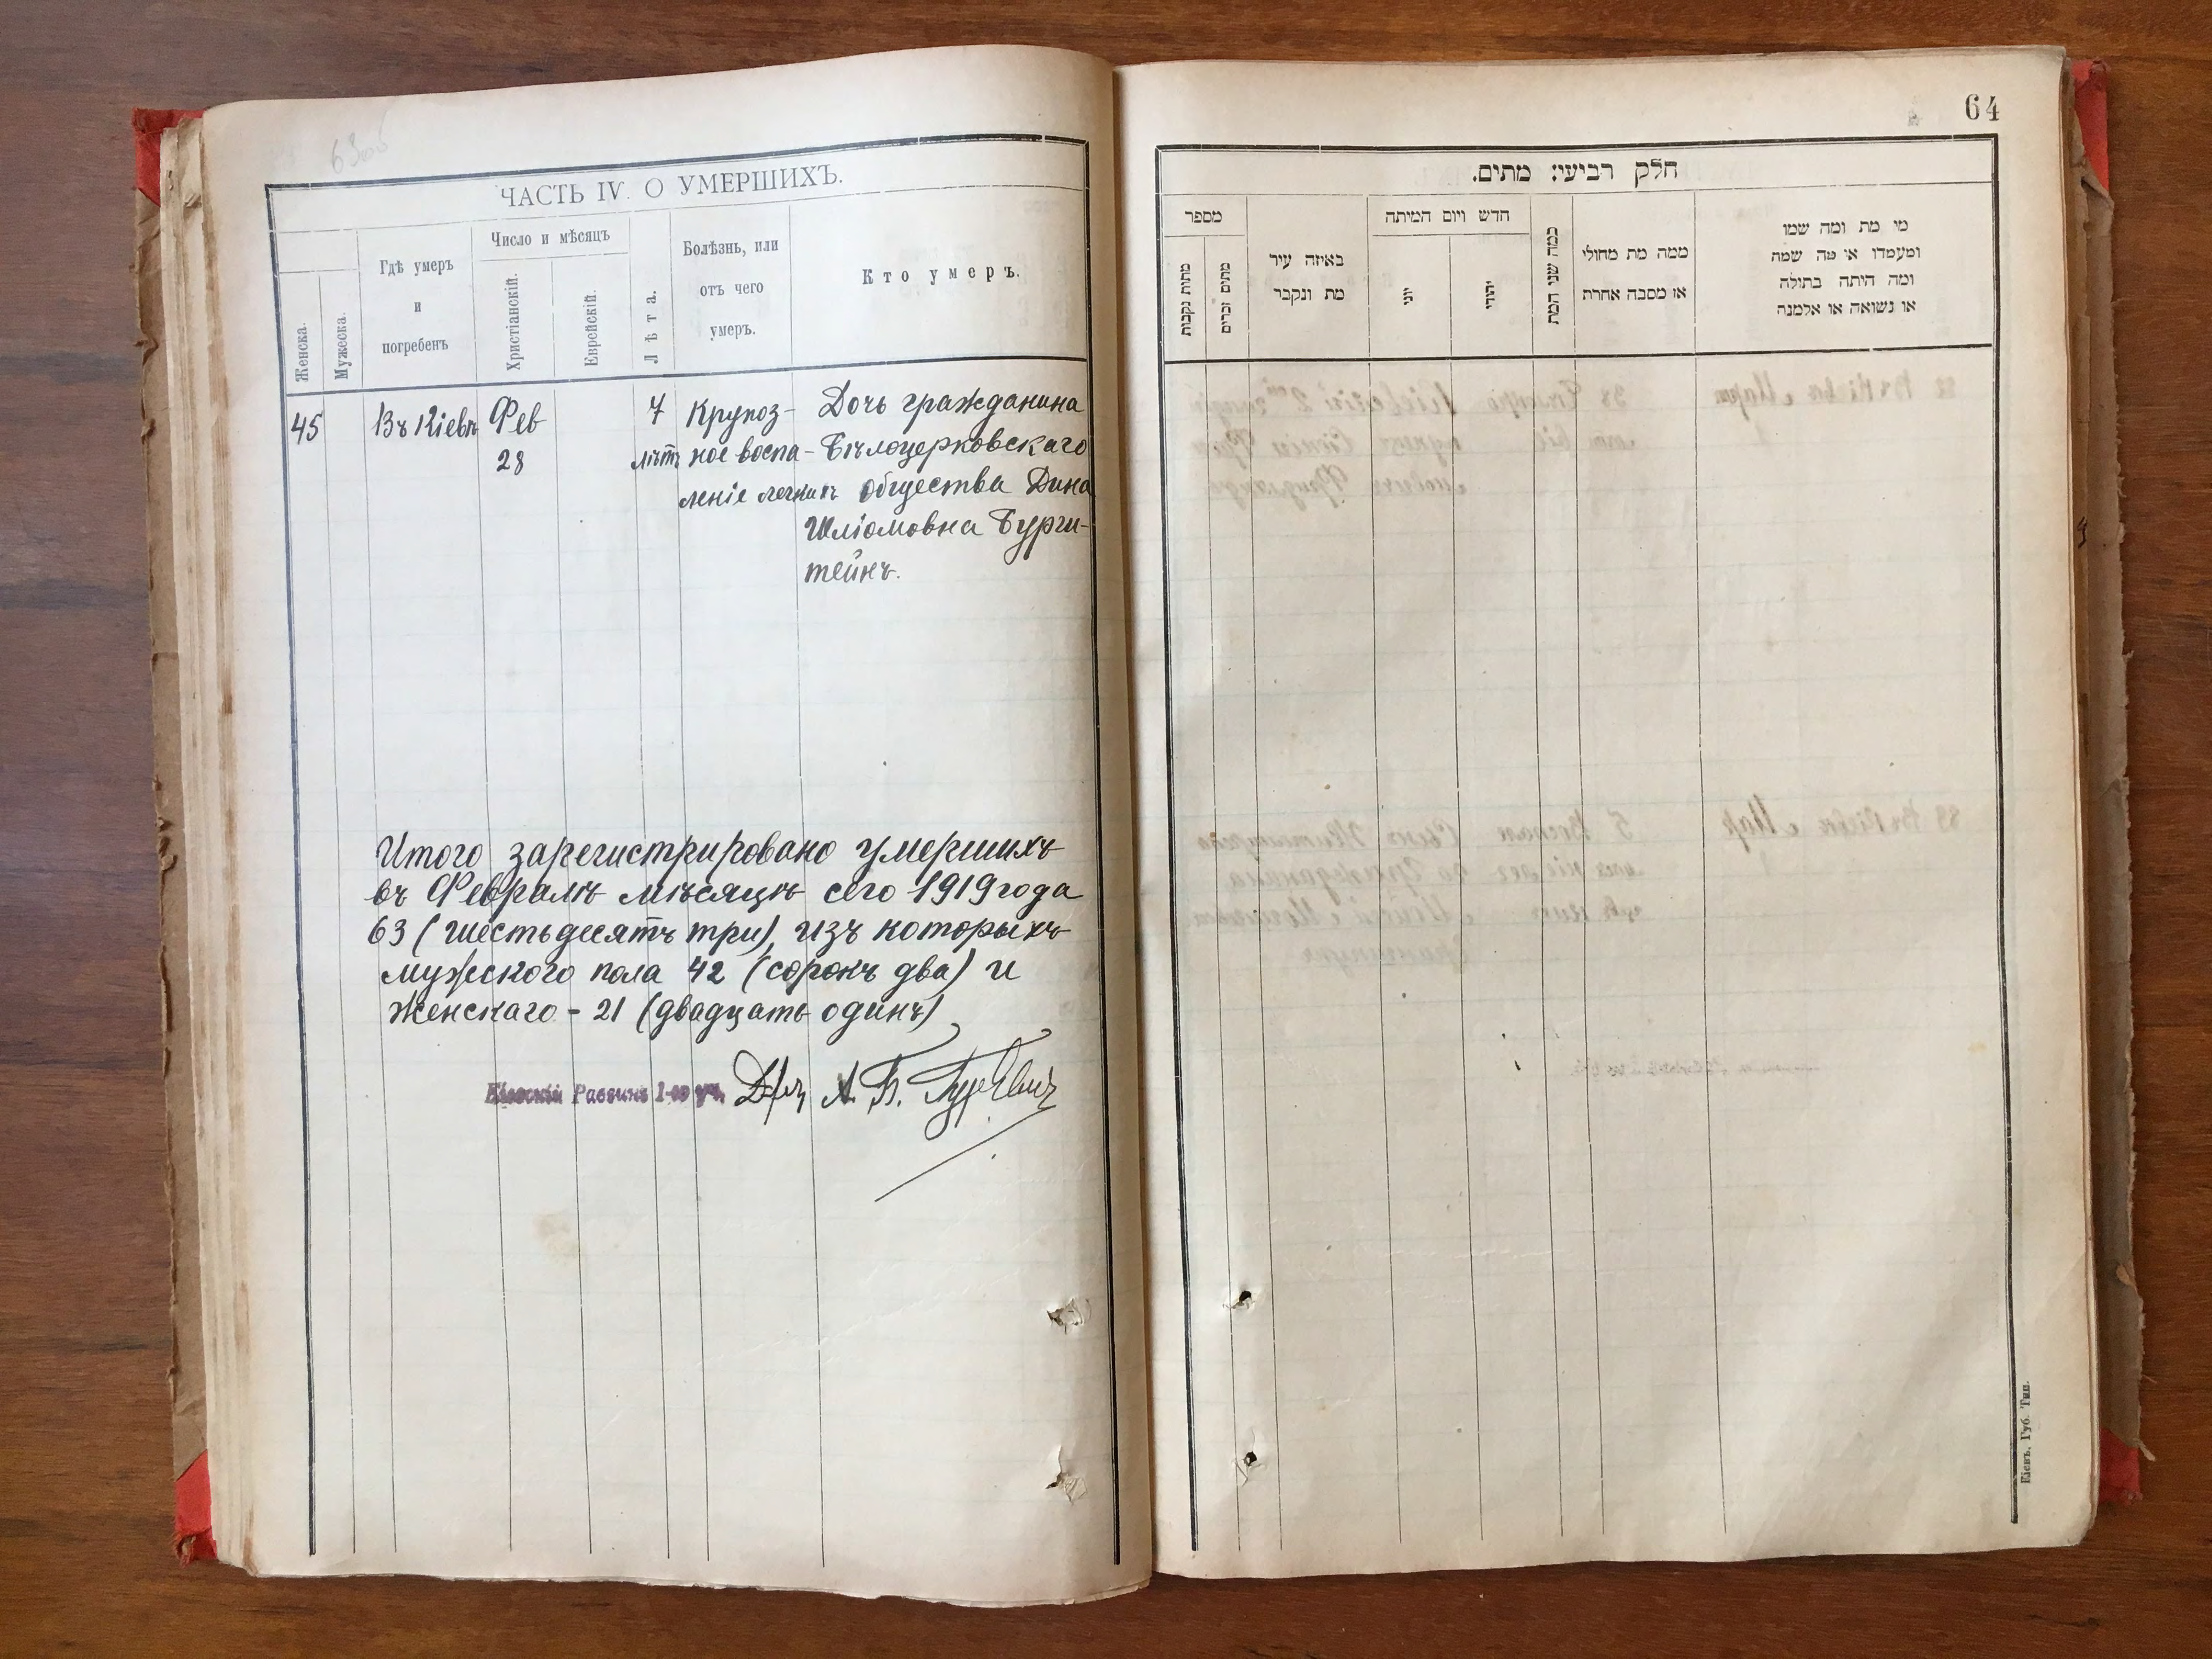 63об
ЧАСТЬ IV. О УМЕРШИХЪ.
Женска.
Мужеска.
Гдѣ умеръ
и
погребенъ
Число и мѣсяцъ
Христіанскій.
Еврейскій.
Лѣта.
Болѣзнь, или
отъ чего
умеръ.
Кто умеръ.
45
Въ Кіевѣ
Фев
28
7
лѣтъ
Крупоз-
ное воспа-
леніе легкихъ
Дочь гражданина
Бѣлоцерковскаго
общества Дина
Шліомовна Бурш-
тейнъ.
Итого зарегистрировано умершихъ
въ Февралѣ мѣсяцѣ сего 1919 года
63 (шестьдесятъ три), изъ которыхъ
мужского пола 42 (сорокъ два) и
женскаго - 21 (двадцать одинъ)
Кіевскій Раввинъ 1-го уч. А. Б. Гуревичъ
64
חלק רביעי: מתים.
מספר
מתות נקבות
מתים זכרים
באיזה עיר
מת ונקבר
חדש ויום המיתה
יוני
יהודי
כמה שני המת
ממה מת מחולי
או מסבה אחרת
מי מת ומה שמו
ומעמדו או מה שמה
ומה היתה בתולה
או נשואה או אלמנה
Кіевъ, Губ. Тип.